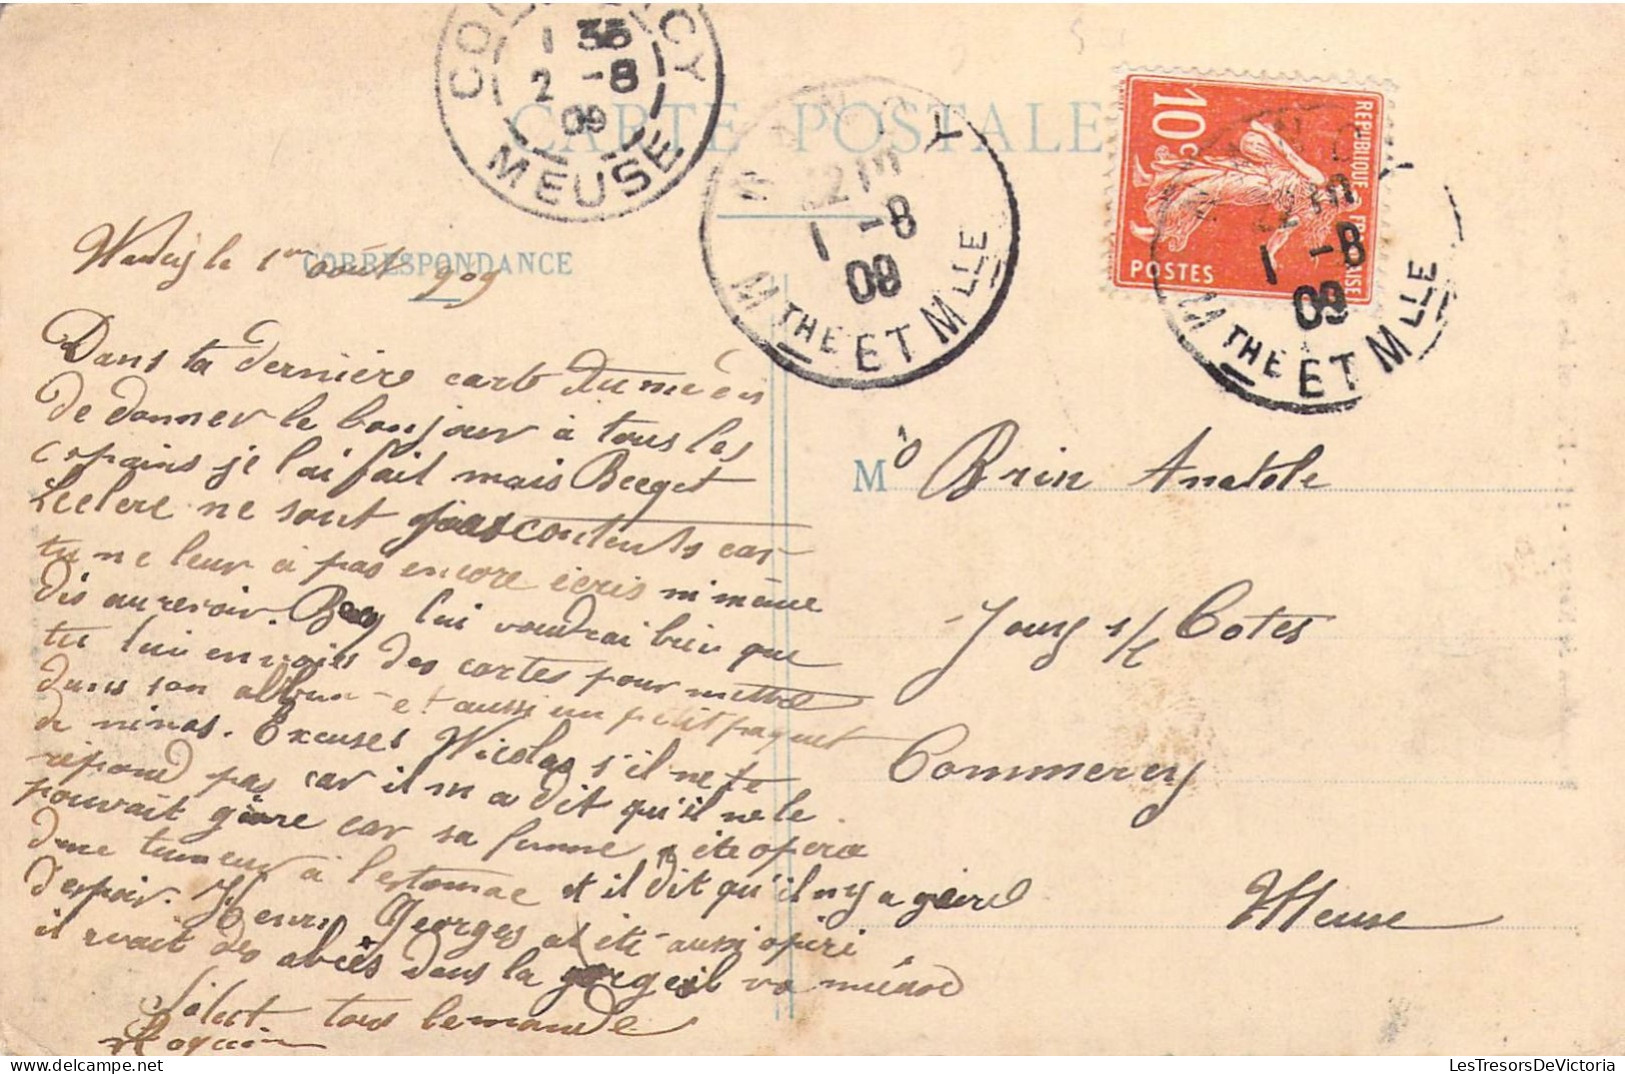 CO CY
1 35
2 -8
09
MEUSE
CARTE POSTALE
12 III
1 -8
09
MTHE ET MLLE
10c
REPUBLIQUE FRANÇAISE
POSTES
III
1 -8
09
MTHE ET MLLE
CORRESPONDANCE
le 1er août 909
Dans ta dernière carte tu me dis
de donner le bonjour à tous les
copains je l'ai fait mais Beeget
Leclerc ne sont pas contents car
tu ne leur à pas encore écris ni même
dis au revoir. Beeg lui voudrai bien que
tu lui envoies des cartes pour mettre
dans son album et aussi un petit paquet
de ninas. Excuses Nicolas s'il ne te
répond pas car il m'a dit qu'il ne le
pouvait gière car sa femme a été opéré
d'une tumeur à l'estomac et il dit qu'il n'y a gière
d'espoir. Henri Georges a été aussi opéri
il avait des abcès dans la gorge il va mieux
Salut tous le monde
M Brin Anatole
Jouy s/ Cotes
Commercy
Meuse
LesTresorsDeVictoria